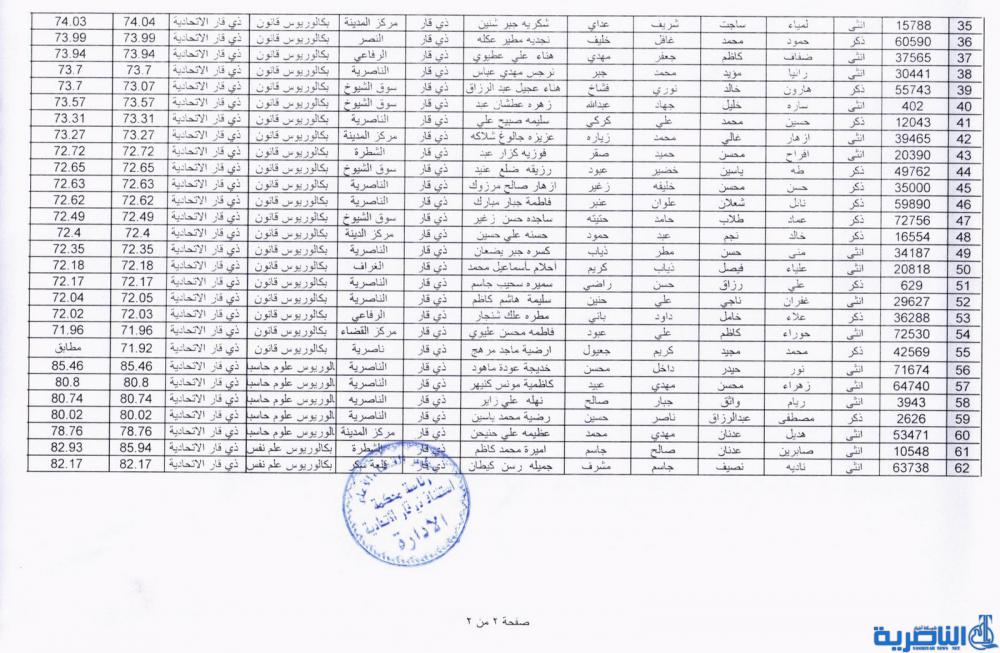 35 15788 انثى لمياء ساجت شريف عداي شكريه جبر شنين ذي قار مركز المدينة بكالوريوس قانون ذي قار الاتحادية 74.04 74.03
36 60590 ذكر حمود محمد غافل خليف نجديه مطير عكله ذي قار النصر بكالوريوس قانون ذي قار الاتحادية 73.99 73.99
37 37565 انثى ضفاف كاظم جعفر مهدي هناء علي عطيوي ذي قار الرفاعي بكالوريوس قانون ذي قار الاتحادية 73.94 73.94
38 30441 انثى رانيا مؤيد محمد جبر نرجس مهدي عباس ذي قار الناصرية بكالوريوس قانون ذي قار الاتحادية 73.7 73.7
39 55743 ذكر هارون خالد نوري فشاخ هناء عجيل عبد الرزاق ذي قار سوق الشيوخ بكالوريوس قانون ذي قار الاتحادية 73.07 73.7
40 402 انثى ساره خليل جهاد عبدالله زهره عطشان عبد ذي قار سوق الشيوخ بكالوريوس قانون ذي قار الاتحادية 73.57 73.57
41 12043 ذكر حسين محمد علي كركي سليمه صبيح علي ذي قار الناصرية بكالوريوس قانون ذي قار الاتحادية 73.31 73.31
42 39465 انثى ازهار غالي محمد زياره عزيزه جالوغ شلاكه ذي قار مركز المدينة بكالوريوس قانون ذي قار الاتحادية 73.27 73.27
43 20390 انثى افراح محسن حميد صقر فوزيه كزار عبد ذي قار الشطرة بكالوريوس قانون ذي قار الاتحادية 72.72 72.72
44 49762 ذكر طه ياسين خضير عبود رزيقه ضلع عنيد ذي قار سوق الشيوخ بكالوريوس قانون ذي قار الاتحادية 72.65 72.65
45 35000 ذكر حسن محسن خليفه زغير ازهار صالح مرزوك ذي قار الناصرية بكالوريوس قانون ذي قار الاتحادية 72.63 72.63
46 59890 انثى نادل شعلان علوان عنبر فاطمة جبار مبارك ذي قار الناصرية بكالوريوس قانون ذي قار الاتحادية 72.62 72.62
47 72756 ذكر عماد طلاب حامد حتيته ساجده حسن زغير ذي قار سوق الشيوخ بكالوريوس قانون ذي قار الاتحادية 72.49 72.49
48 16554 ذكر خالد نجم عبد حمود حسنه علي حسين ذي قار مركز الدينة بكالوريوس قانون ذي قار الاتحادية 72.4 72.4
49 34187 انثى منى حسن مطر ذياب كسره جبر يضعان ذي قار الناصرية بكالوريوس قانون ذي قار الاتحادية 72.35 72.35
50 20818 انثى علياء فيصل ذياب كريم أحلام بأسماعيل محمد ذي قار الغراف بكالوريوس قانون ذي قار الاتحادية 72.18 72.18
51 629 ذكر علي رزاق حسن راضي سميره سحيب جاسم ذي قار الناصرية بكالوريوس قانون ذي قار الاتحادية 72.17 72.17
52 29627 انثى غفران ناجي علي حنين سليمة هاشم كاظم ذي قار الناصرية بكالوريوس قانون ذي قار الاتحادية 72.05 72.04
53 36288 ذكر علاء خامل داود باني مطره علك شنجار ذي قار الرفاعي بكالوريوس قانون ذي قار الاتحادية 72.03 72.02
54 72530 انثى حوراء كاظم علي عبود فاطمه محسن عليوي ذي قار مركز القضاء بكالوريوس قانون ذي قار الاتحادية 71.96 71.96
55 42569 ذكر محمد مجيد كريم جعيول ارضية ماجد مرهج ذي قار ناصرية بكالوريوس قانون ذي قار الاتحادية 71.92 مطابق
56 71674 انثى نور حيدر داخل محسن خديجة عودة ماهود ذي قار الناصرية الوريوس علوم حاسبا ذي قار الاتحادية 85.46 85.46
57 64740 انثى زهراء محسن مهدي عبيد كاظمية مونس كنيهر ذي قار الناصرية الوريوس علوم حاسبا ذي قار الاتحادية 80.8 80.8
58 3943 انثى ريام واثق جبار صالح نهله علي زاير ذي قار الناصرية الوريوس علوم حاسبا ذي قار الاتحادية 80.74 80.74
59 2626 ذكر مصطفى عبدالرزاق ناصر حسين رضية محمد ياسين ذي قار الناصرية الوريوس علوم حاسبا ذي قار الاتحادية 80.02 80.02
60 53471 انثى هديل عدنان مهدي محمد عظيمه علي حنيحن ذي قار مركز المدينة الوريوس علوم حاسبا ذي قار الاتحادية 78.76 78.76
61 10548 انثى صابرين عدنان صالح جاسم اميرة محمد كاظم ذي قار الشطرة بكالوريوس علم نفس ذي قار الاتحادية 85.94 82.93
62 63738 انثى ناديه نصيف جاسم مشرف جميله رسن كيطان ذي قار قلعة سكر بكالوريوس علم نفس ذي قار الاتحادية 82.17 82.17
رئاسة محكمة
استئناف ذي قار الاتحادية
الادارة
صفحة ٢ من ٢
شبكة اخبار
الناصرية
NASIRIYAH NEWS NET